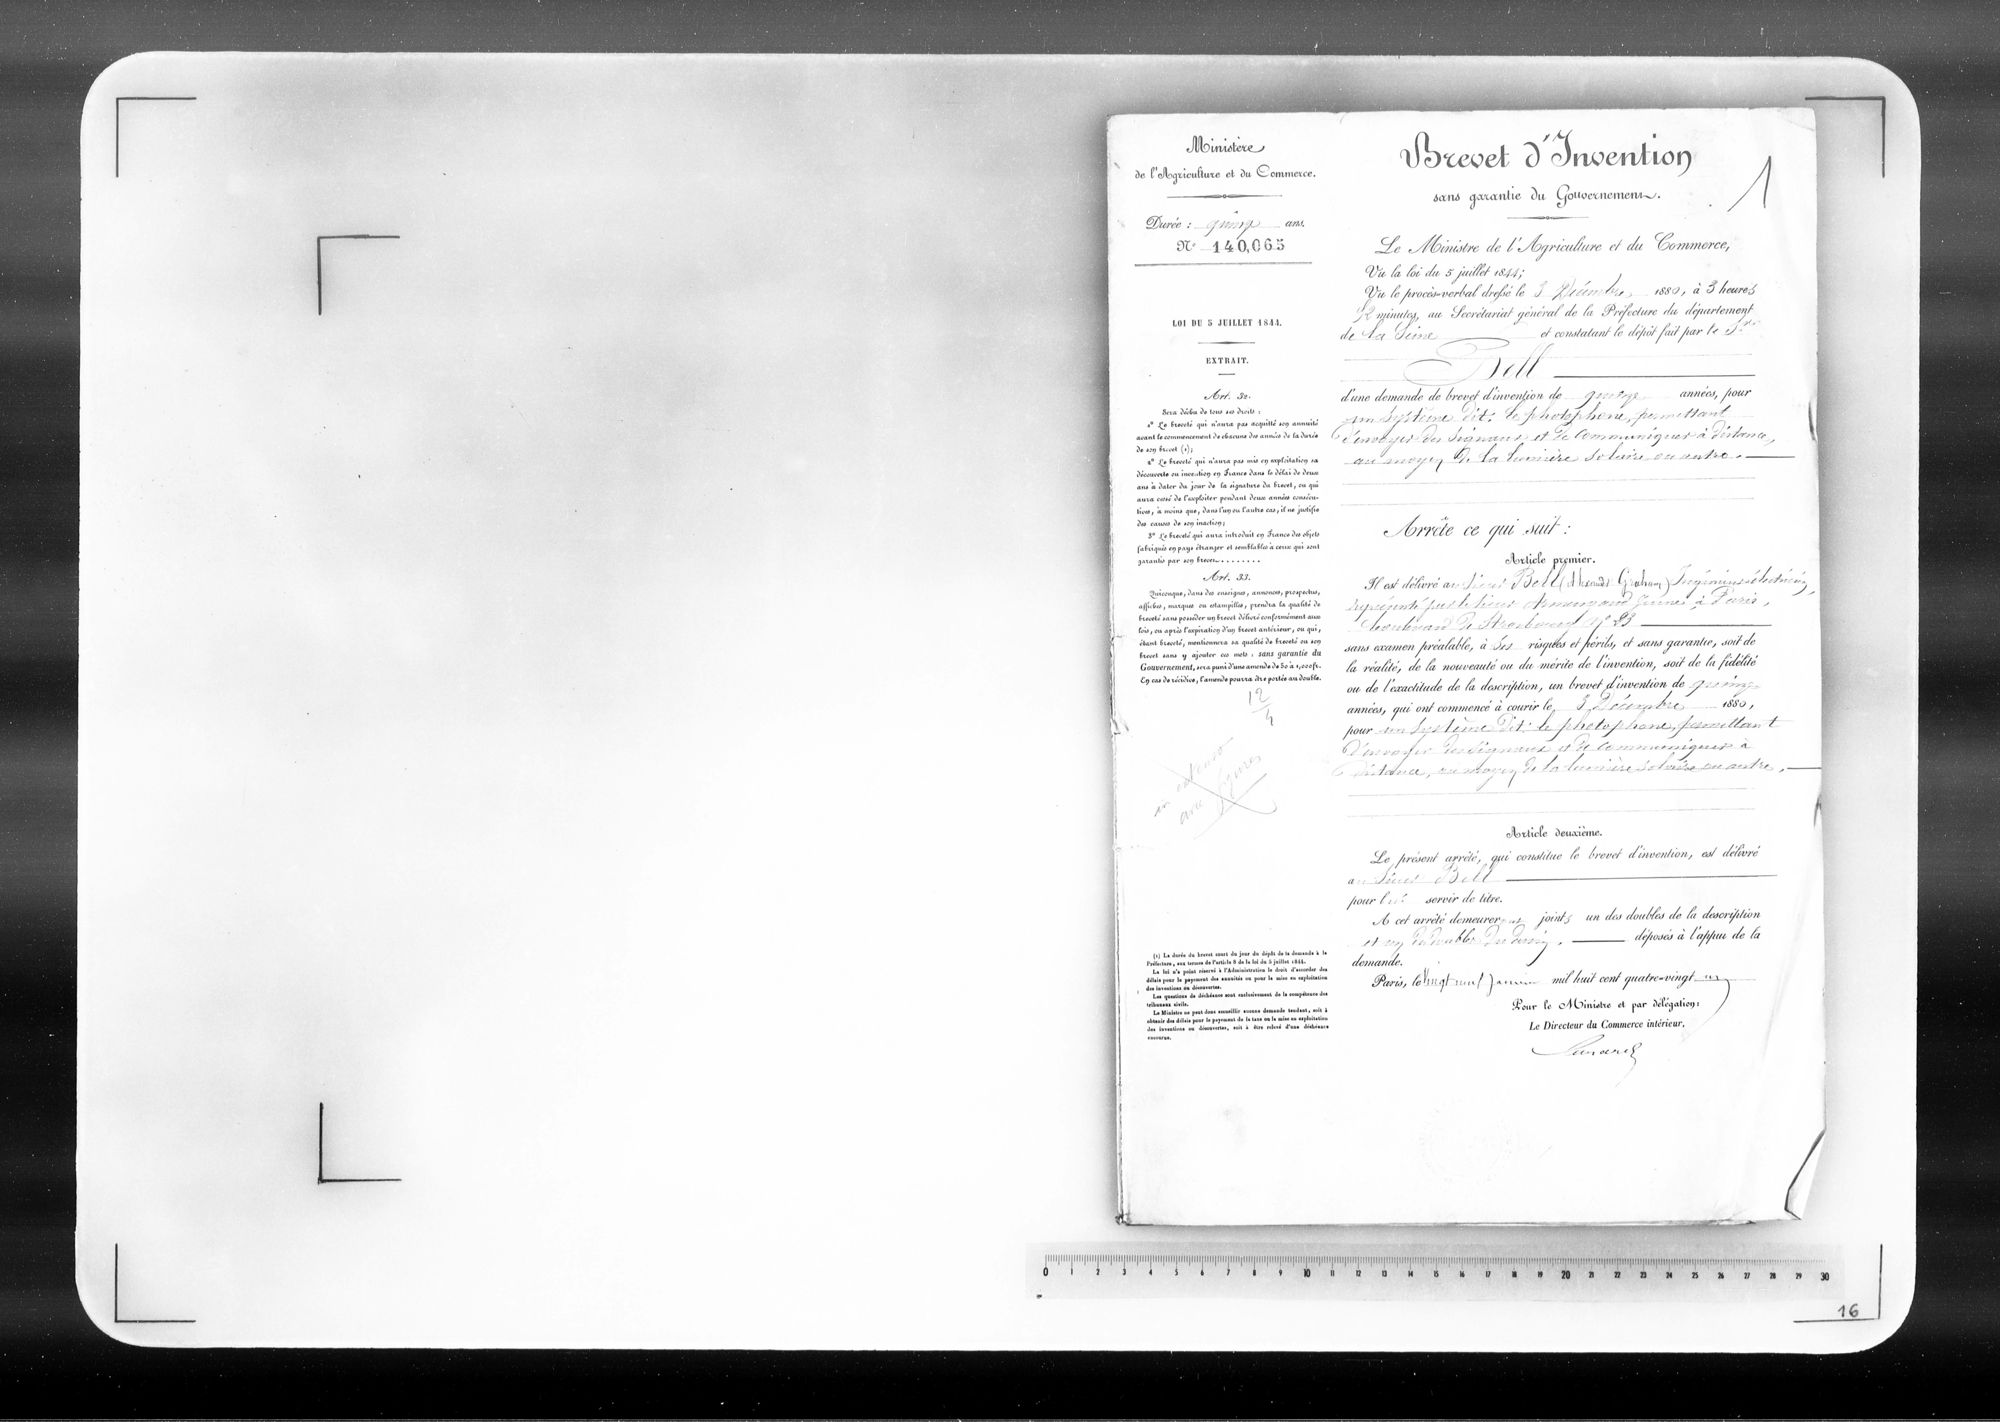 Ministère
de l'Agriculture et du Commerce.
Durée : quinze ans.
N° 140,065
LOI DU 5 JUILLET 1844.
EXTRAIT.
Art. 32.
Sera déchu de tous ses droits :
1° Le breveté qui n'aura pas acquitté son annuité
avant le commencement de chacune des années de la durée
de son brevet (1);
2° Le breveté qui n'aura pas mis en exploitation sa
découverte ou invention en France dans le délai de deux
ans à dater du jour de la signature du brevet, ou qui
aura cessé de l'exploiter pendant deux années consécu-
tives, à moins que, dans l'un ou l'autre cas, il ne justifie
des causes de son inaction;
3° Le breveté qui aura introduit en France des objets
fabriqués en pays étranger et semblables à ceux qui sont
garantis par son brevet........
Art. 33.
Quiconque, dans des enseignes, annonces, prospectus,
affiches, marques ou estampilles, prendra la qualité de
breveté sans posséder un brevet délivré conformément aux
lois, ou après l'expiration d'un brevet antérieur, ou qui,
étant breveté, mentionnera sa qualité de breveté ou son
brevet sans y ajouter ces mots : sans garantie du
Gouvernement, sera puni d'une amende de 50 à 1,000 fr.
En cas de récidive, l'amende pourra être portée au double.
12
in extenso
avec figures
(1) La durée du brevet court du jour du dépôt de la demande à la
Préfecture, aux termes de l'article 8 de la loi du 5 juillet 1844.
La loi n'a point réservé à l'Administration le droit d'accorder des
délais pour le payement des annuités ou pour la mise en exploitation
des inventions ou découvertes.
Les questions de déchéance sont exclusivement de la compétence des
tribunaux civils.
Le Ministre ne peut donc accueillir aucune demande tendant, soit à
obtenir des délais pour le payement de la taxe ou la mise en exploitation
des inventions ou découvertes, soit à être relevé d'une déchéance
encourue.
Brevet d'Invention
1
sans garantie du Gouvernement.
Le Ministre de l'Agriculture et du Commerce,
Vu la loi du 5 juillet 1844;
Vu le procès-verbal dressé le 3 Décembre 1880, à 3 heures
minutes, au Secrétariat général de la Préfecture du département
de la Seine et constatant le dépôt fait par le Sr
Bell
d'une demande de brevet d'invention de quinze années, pour
un système dit: le photophone, permettant
d'envoyer des signaux et de communiquer à distance,
au moyen de la lumière solaire ou autre.
Arrête ce qui suit :
Article premier.
Il est délivré au Sieur Bell (Alexandre Graham) Ingénieur électricien,
représenté par le Sieur Armengaud jeune, à Paris,
boulevard de Strasbourg n° 23
sans examen préalable, à ses risques et périls, et sans garantie, soit de
la réalité, de la nouveauté ou du mérite de l'invention, soit de la fidélité
ou de l'exactitude de la description, un brevet d'invention de quinze
années, qui ont commencé à courir le 3 Décembre 1880,
pour un système dit: le photophone, permettant
d'envoyer des signaux et de communiquer à
distance, au moyen de la lumière solaire ou autre.
Article deuxième.
Le présent arrêté, qui constitue le brevet d'invention, est délivré
au Sieur Bell
pour lui servir de titre.
A cet arrêté demeureront joints un des doubles de la description
et un des doubles du dessin. déposés à l'appui de la
demande.
Paris, le vingt neuf janvier mil huit cent quatre-vingt un
Pour le Ministre et par délégation:
Le Directeur du Commerce intérieur,
0 1 2 3 4 5 6 7 8 9 10 11 12 13 14 15 16 17 18 19 20 21 22 23 24 25 26 27 28 29 30
16